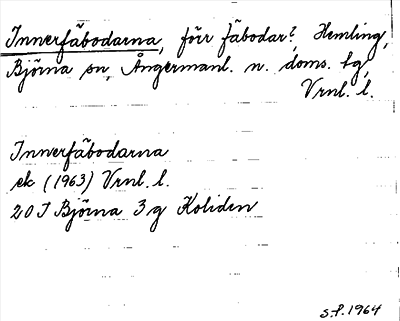 Innerfäbodarna, förr fäbodar?, Hemling,
Björna sn, Ångermanl. n. doms. tg,
Vrnl. l.
Innerfäbodarna
ek (1963) Vrnl. l.
20 I Björna 3 g Koliden
S.F. 1964